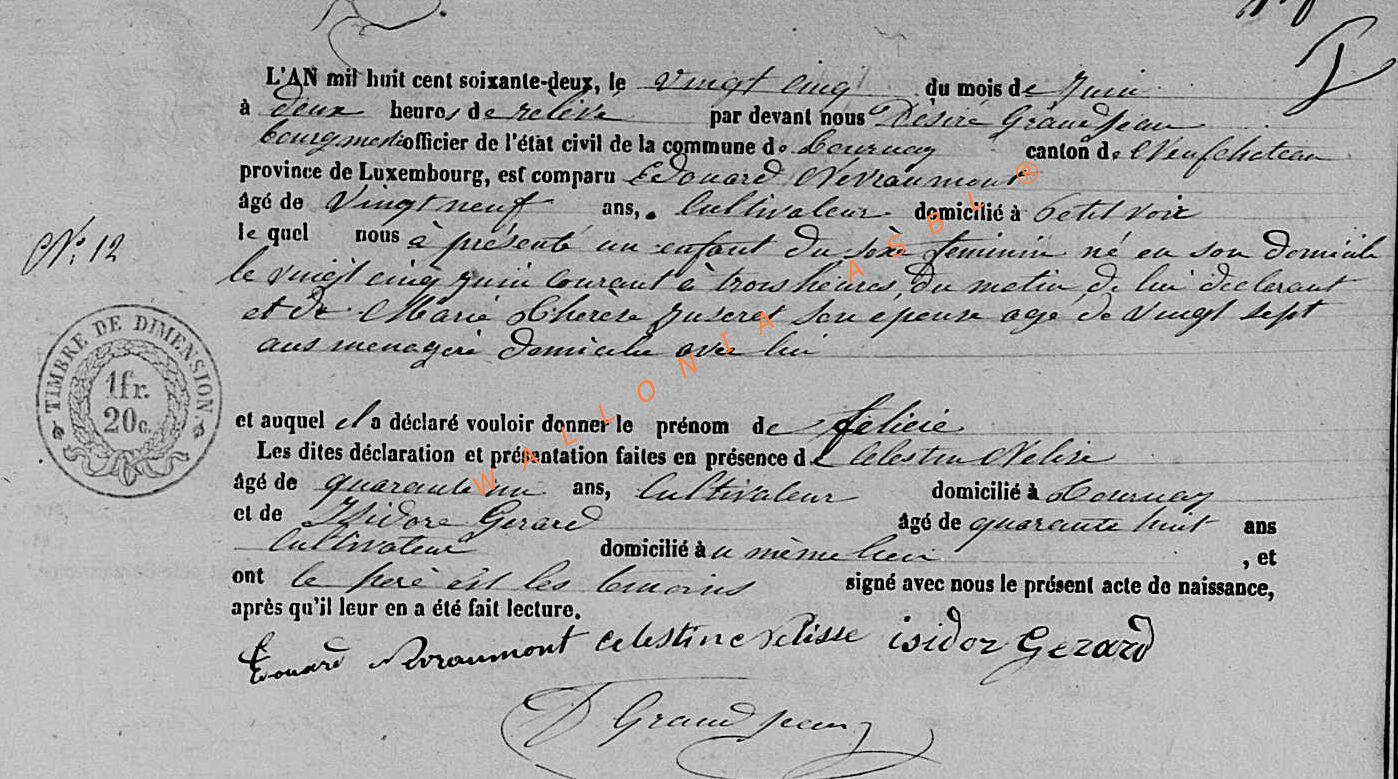 L'AN mil huit cent soixante-deux, le vingt cinq du mois de Juin
à deux heures de relevé par devant nous Désiré Grandjean
bourgmestre officier de l'état civil de la commune de Tournay canton de Neufchateau
province de Luxembourg, est comparu Edouard Nevraumont
âgé de Vingt neuf ans, Cultivateur domicilié à Petitvoir
le quel nous à présenté un enfant du sexe feminin né en son domicile
N.º 12
le vingt cinq Juin courant à trois heures du matin, de lui déclarant
et de Marie Thérèse Juseret son épouse agé de Vingt sept
ans menagere domicilié avec lui
TIMBRE DE DIMENSION
1fr.
20c.
et auquel il a déclaré vouloir donner le prénom de felicie
Les dites déclaration et présentation faites en présence de Celestin Nelise
âgé de quarante un ans, Cultivateur domicilié à Tournay
et de Isidore Gerard âgé de quarante huit ans
Cultivateur domicilié à u même lieu , et
ont le père est les temoins signé avec nous le présent acte de naissance,
après qu'il leur en a été fait lecture.
Edouard Nevraumont Celestin Nelisse isidor Gerard
D Grandjean
WALLONIA ASBL ®